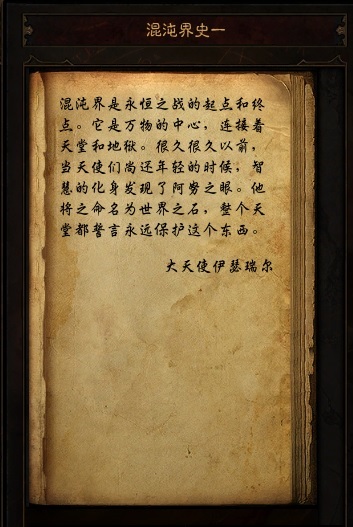 混沌界史一
混沌界是永恒之战的起点和终
点。它是万物的中心，连接着
天堂和地狱。很久很久以前，
当天使们尚还年轻的时候，智
慧的化身发现了阿努之眼。他
将之命名为世界之石，整个天
堂都誓言永远保护这个东西。
大天使伊瑟瑞尔